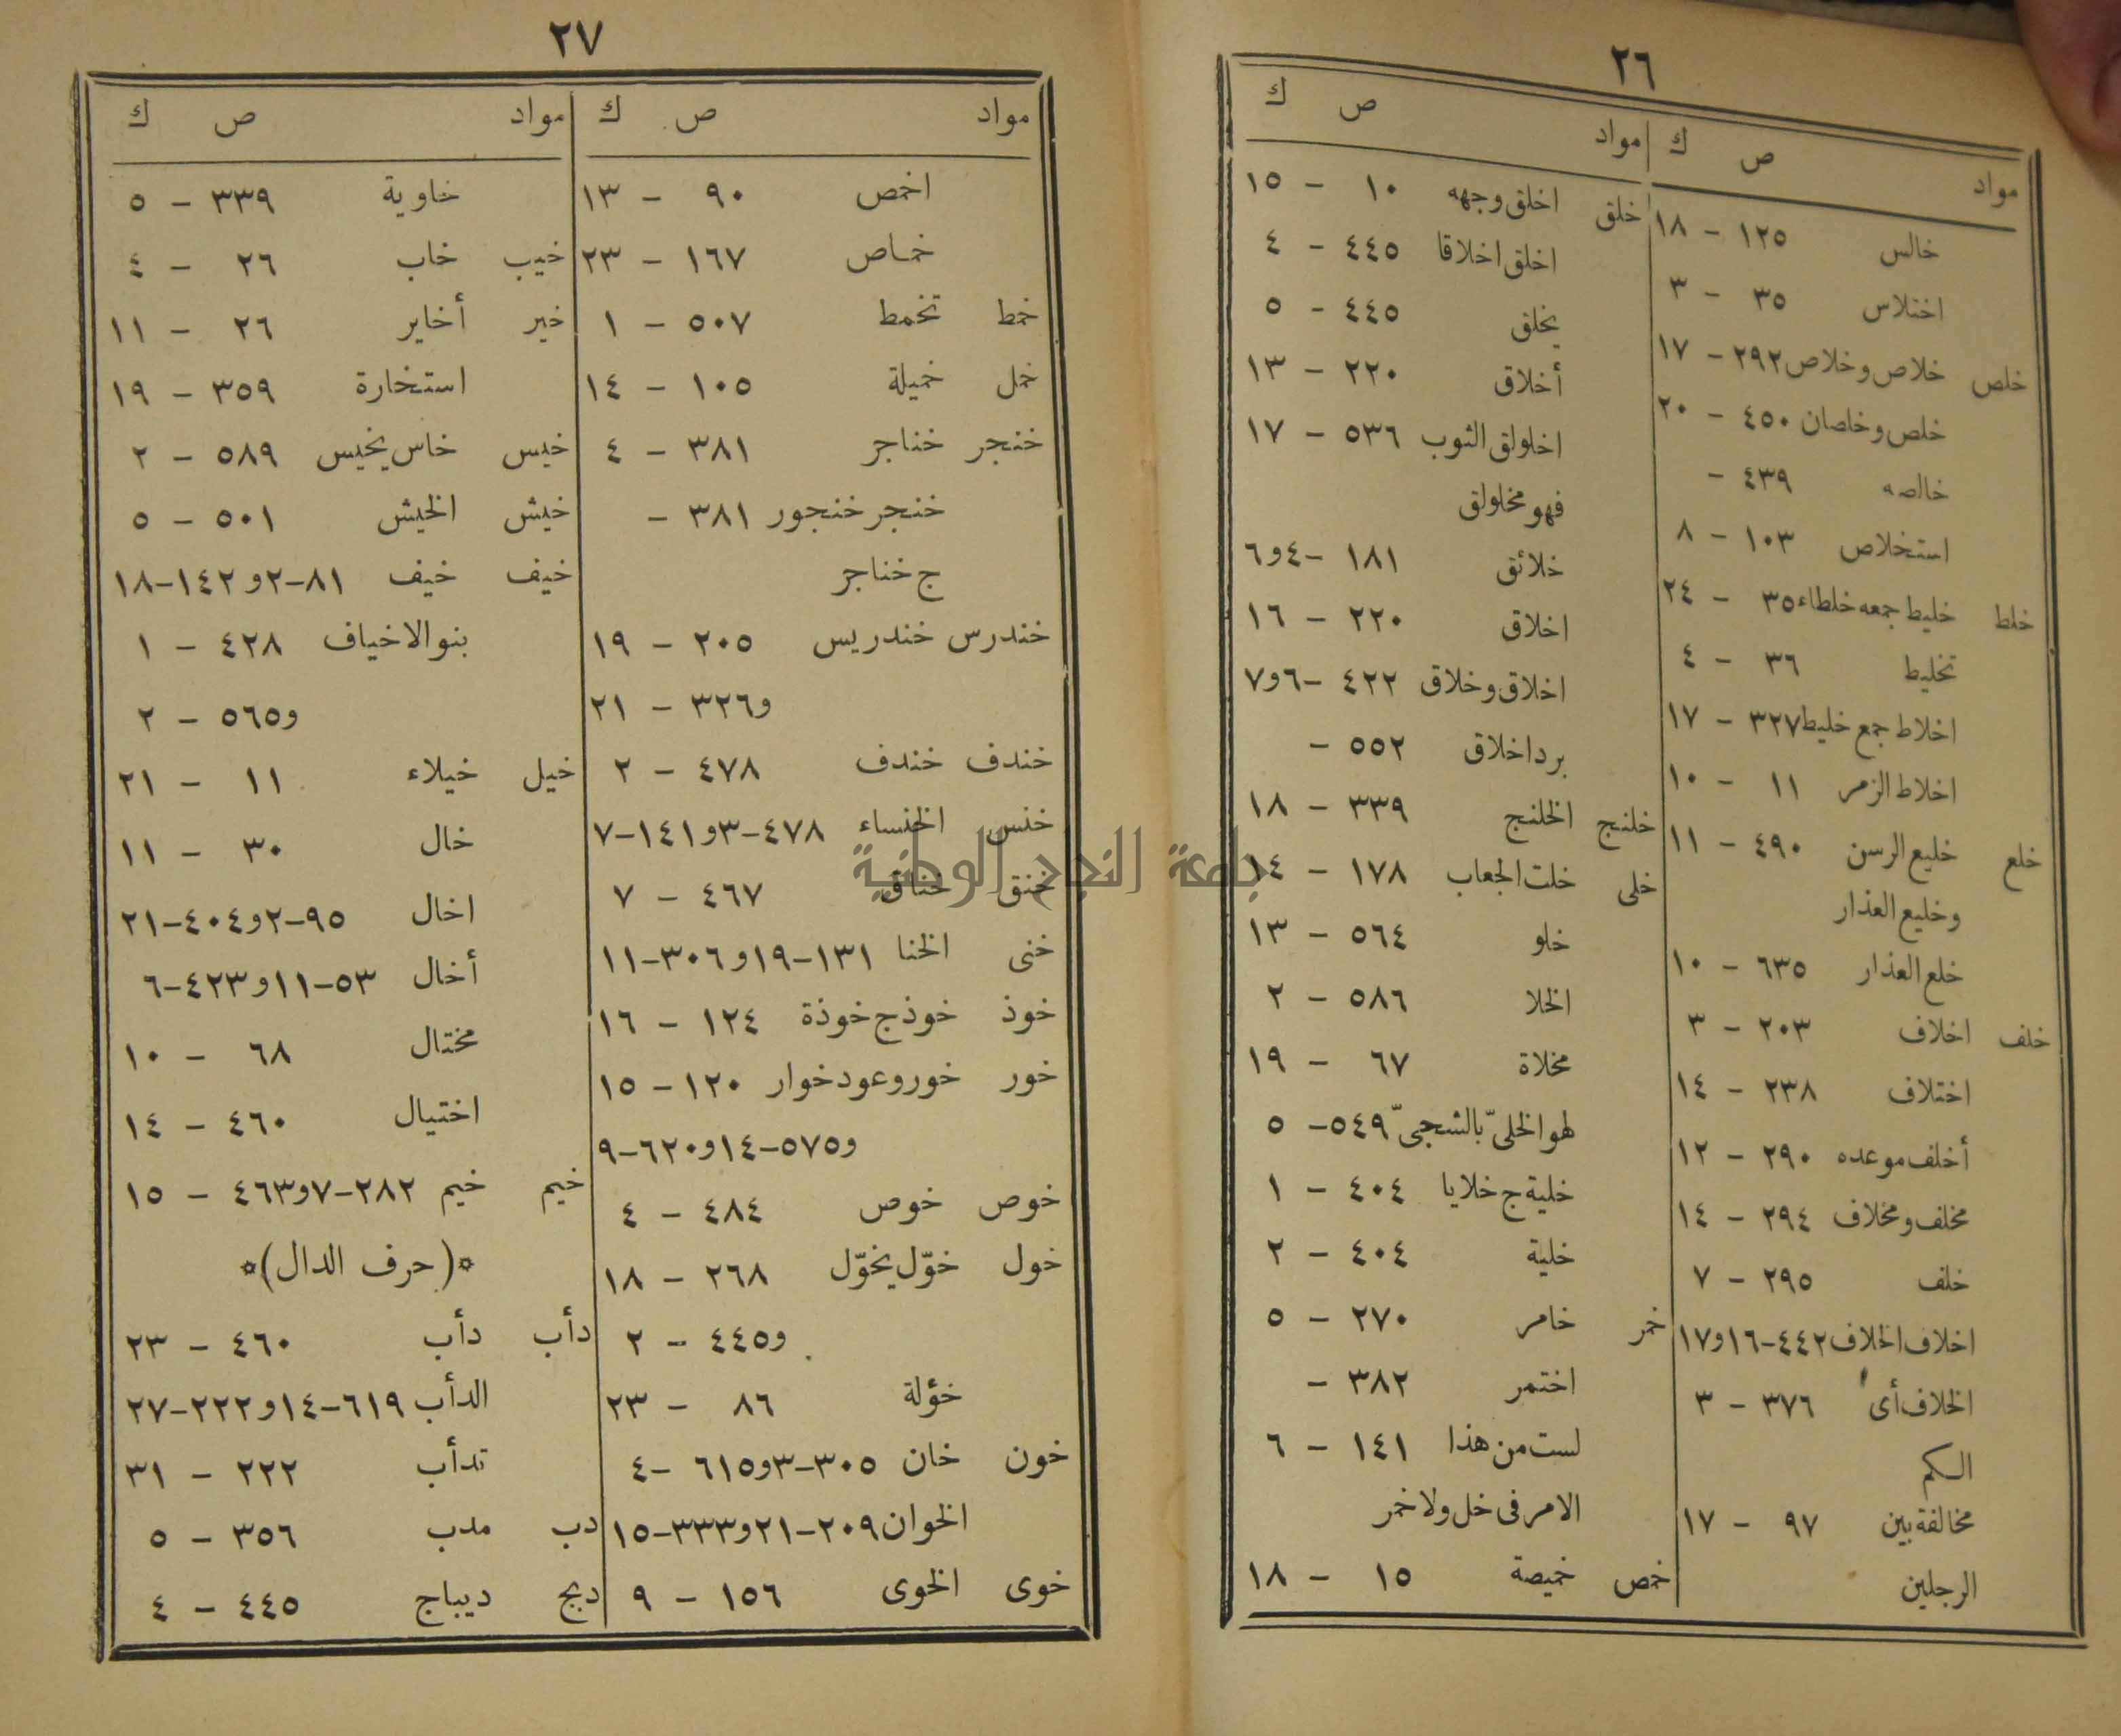 ٢٦
مواد ص ك
خالس ١٢٥ - ١٨
اختلاس ٣٥ - ٣
خلص خلاص وخلاص ٢٩٢ - ١٧
خلص وخلصان ٤٥٠ - ٢٠
خالصه ٤٣٩ -
استخلاص ١٠٣ - ٨
خلط خليط جمعه خلطاء ٣٥ - ٢٤
تخليط ٣٦ - ٤
اخلاط جمع خليط ٣٢٧ - ١٧
اخلاط الزمر ١١ - ١٠
خلع خليع الرسن ٤٩٠ - ١١
وخليع العذار
خلع العذار ٦٣٥ - ١٠
خلف اخلاف ٢٠٣ - ٣
اختلاف ٢٣٨ - ١٤
أخلف موعده ٢٩٠ - ١٢
مخلف ومخلاف ٢٩٤ - ١٤
خلف ٢٩٥ - ٧
اخلاف الخلاف ٤٤٢-١٦و١٧
الخلاف أى ٣٧٦ - ٣
الكم
مخالفة بين ٩٧ - ١٧
الرجلين
مواد ص ك
خلق اخلق وجهه ١٠ - ١٥
اخلق اخلاقا ٤٤٥ - ٤
يخلق ٤٤٥ - ٥
أخلاق ٢٢٠ - ١٣
اخلولق الثوب ٥٣٦ - ١٧
فهو مخلولق
خلائق ١٨١ -٤و٦
اخلاق ٢٢٠ - ١٦
اخلاق وخلاق ٤٢٢ -٦و٧
برد اخلاق ٥٥٢ -
خلنج الخلنج ٣٣٩ - ١٨
خلى خلت الجعاب ١٧٨ - ١٤
خلو ٥٦٤ - ١٣
الخلا ٥٨٦ - ٢
مخلاة ٦٧ - ١٩
لهو الخلىّ بالشجىّ ٥٤٩- ٥
خلية ج خلايا ٤٠٤ - ١
خلية ٤٠٤ - ٢
خمر خامر ٢٧٠ - ٥
اختمر ٣٨٢ -
لست من هذا ١٤١ - ٦
الامر فى خل ولا خمر
خمص خميصة ١٥ - ١٨
٢٧
مواد ص ك
اخمص ٩٠ - ١٣
خماص ١٦٧ - ٢٣
خمط تخمط ٥٠٧ - ١
خمل خميلة ١٠٥ - ١٤
خنجر خناجر ٣٨١ - ٤
خنجر خنجور ٣٨١ -
ج خناجر
خندرس خندريس ٢٠٥ - ١٩
و٣٢٦ - ٢١
خندف خندف ٤٧٨ - ٢
خنس الخنساء ٤٧٨-٣و١٤١-٧
خنق خناق ٤٦٧ - ٧
خنى الخنا ١٣١-١٩و٣٠٦-١١
خوذ خوذ ج خوذة ١٢٤ - ١٦
خور خور وعود خوار ١٢٠ - ١٥
و٥٧٥-١٤و٦٢٠-٩
خوص خوص ٤٨٤ - ٤
خول خوّل يخوّل ٢٦٨ - ١٨
و٤٤٥ - ٢
خؤلة ٨٦ - ٢٣
خون خان ٣٠٥-٣و٦١٥ -٤
الخوان ٢٠٩-٢١و٣٣٣-١٥
خوى الخوى ١٥٦ - ٩
مواد ص ك
خاوية ٣٣٩ - ٥
خيب خاب ٢٦ - ٤
خير أخاير ٢٦ - ١١
استخارة ٣٥٩ - ١٩
خيس خاس يخيس ٥٨٩ - ٢
خيش الخيش ٥٠١ - ٥
خيف خيف ٨١-٢و١٤٢-١٨
بنو الاخياف ٤٢٨ - ١
و٥٦٥ - ٢
خيل خيلاء ١١ - ٢١
خال ٣٠ - ١١
اخال ٩٥-٢و٤٠٤-٢١
أخال ٥٣-١١و٤٢٣-٦
مختال ٦٨ - ١٠
اختيال ٤٦٠ - ١٤
خيم خيم ٢٨٢-٧و٤٦٣ - ١٥
*(حرف الدال)*
دأب دأب ٤٦٠ - ٢٣
الدأب ٦١٩-١٤و٢٢٢-٢٧
تدأب ٢٢٢ - ٣١
دب مدب ٣٥٦ - ٥
دبج ديباج ٤٤٥ - ٤
جامعة النجاح الوطنية